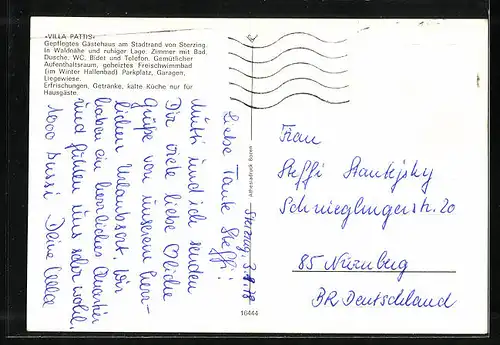 »VILLA PATTIS«
Gepflegtes Gästehaus am Stadtrand von Sterzing.
In Waldnähe und ruhiger Lage: Zimmer mit Bad,
Dusche, WC, Bidet und Telefon. Gemütlicher
Aufenthaltsraum, geheiztes Freischwimmbad
(im Winter Hallenbad) Parkplatz, Garagen,
Liegewiese.
Erfrischungen, Getränke, kalte Küche nur für
Hausgäste.
Sterzing, 3.8.78
Liebe Tante Steffi!
Mutti und ich senden
Dir viele liebe ♡liche
Grüße von unserem herr-
lichen Urlaubsort. Wir
haben ein herrliches Quartier
und fühlen uns sehr wohl.
1000 Bussi Deine
Athesiadruck Bozen
16444
Frau
Steffi
Schnieglingerstr. 20
85 Nürnberg
BR Deutschland